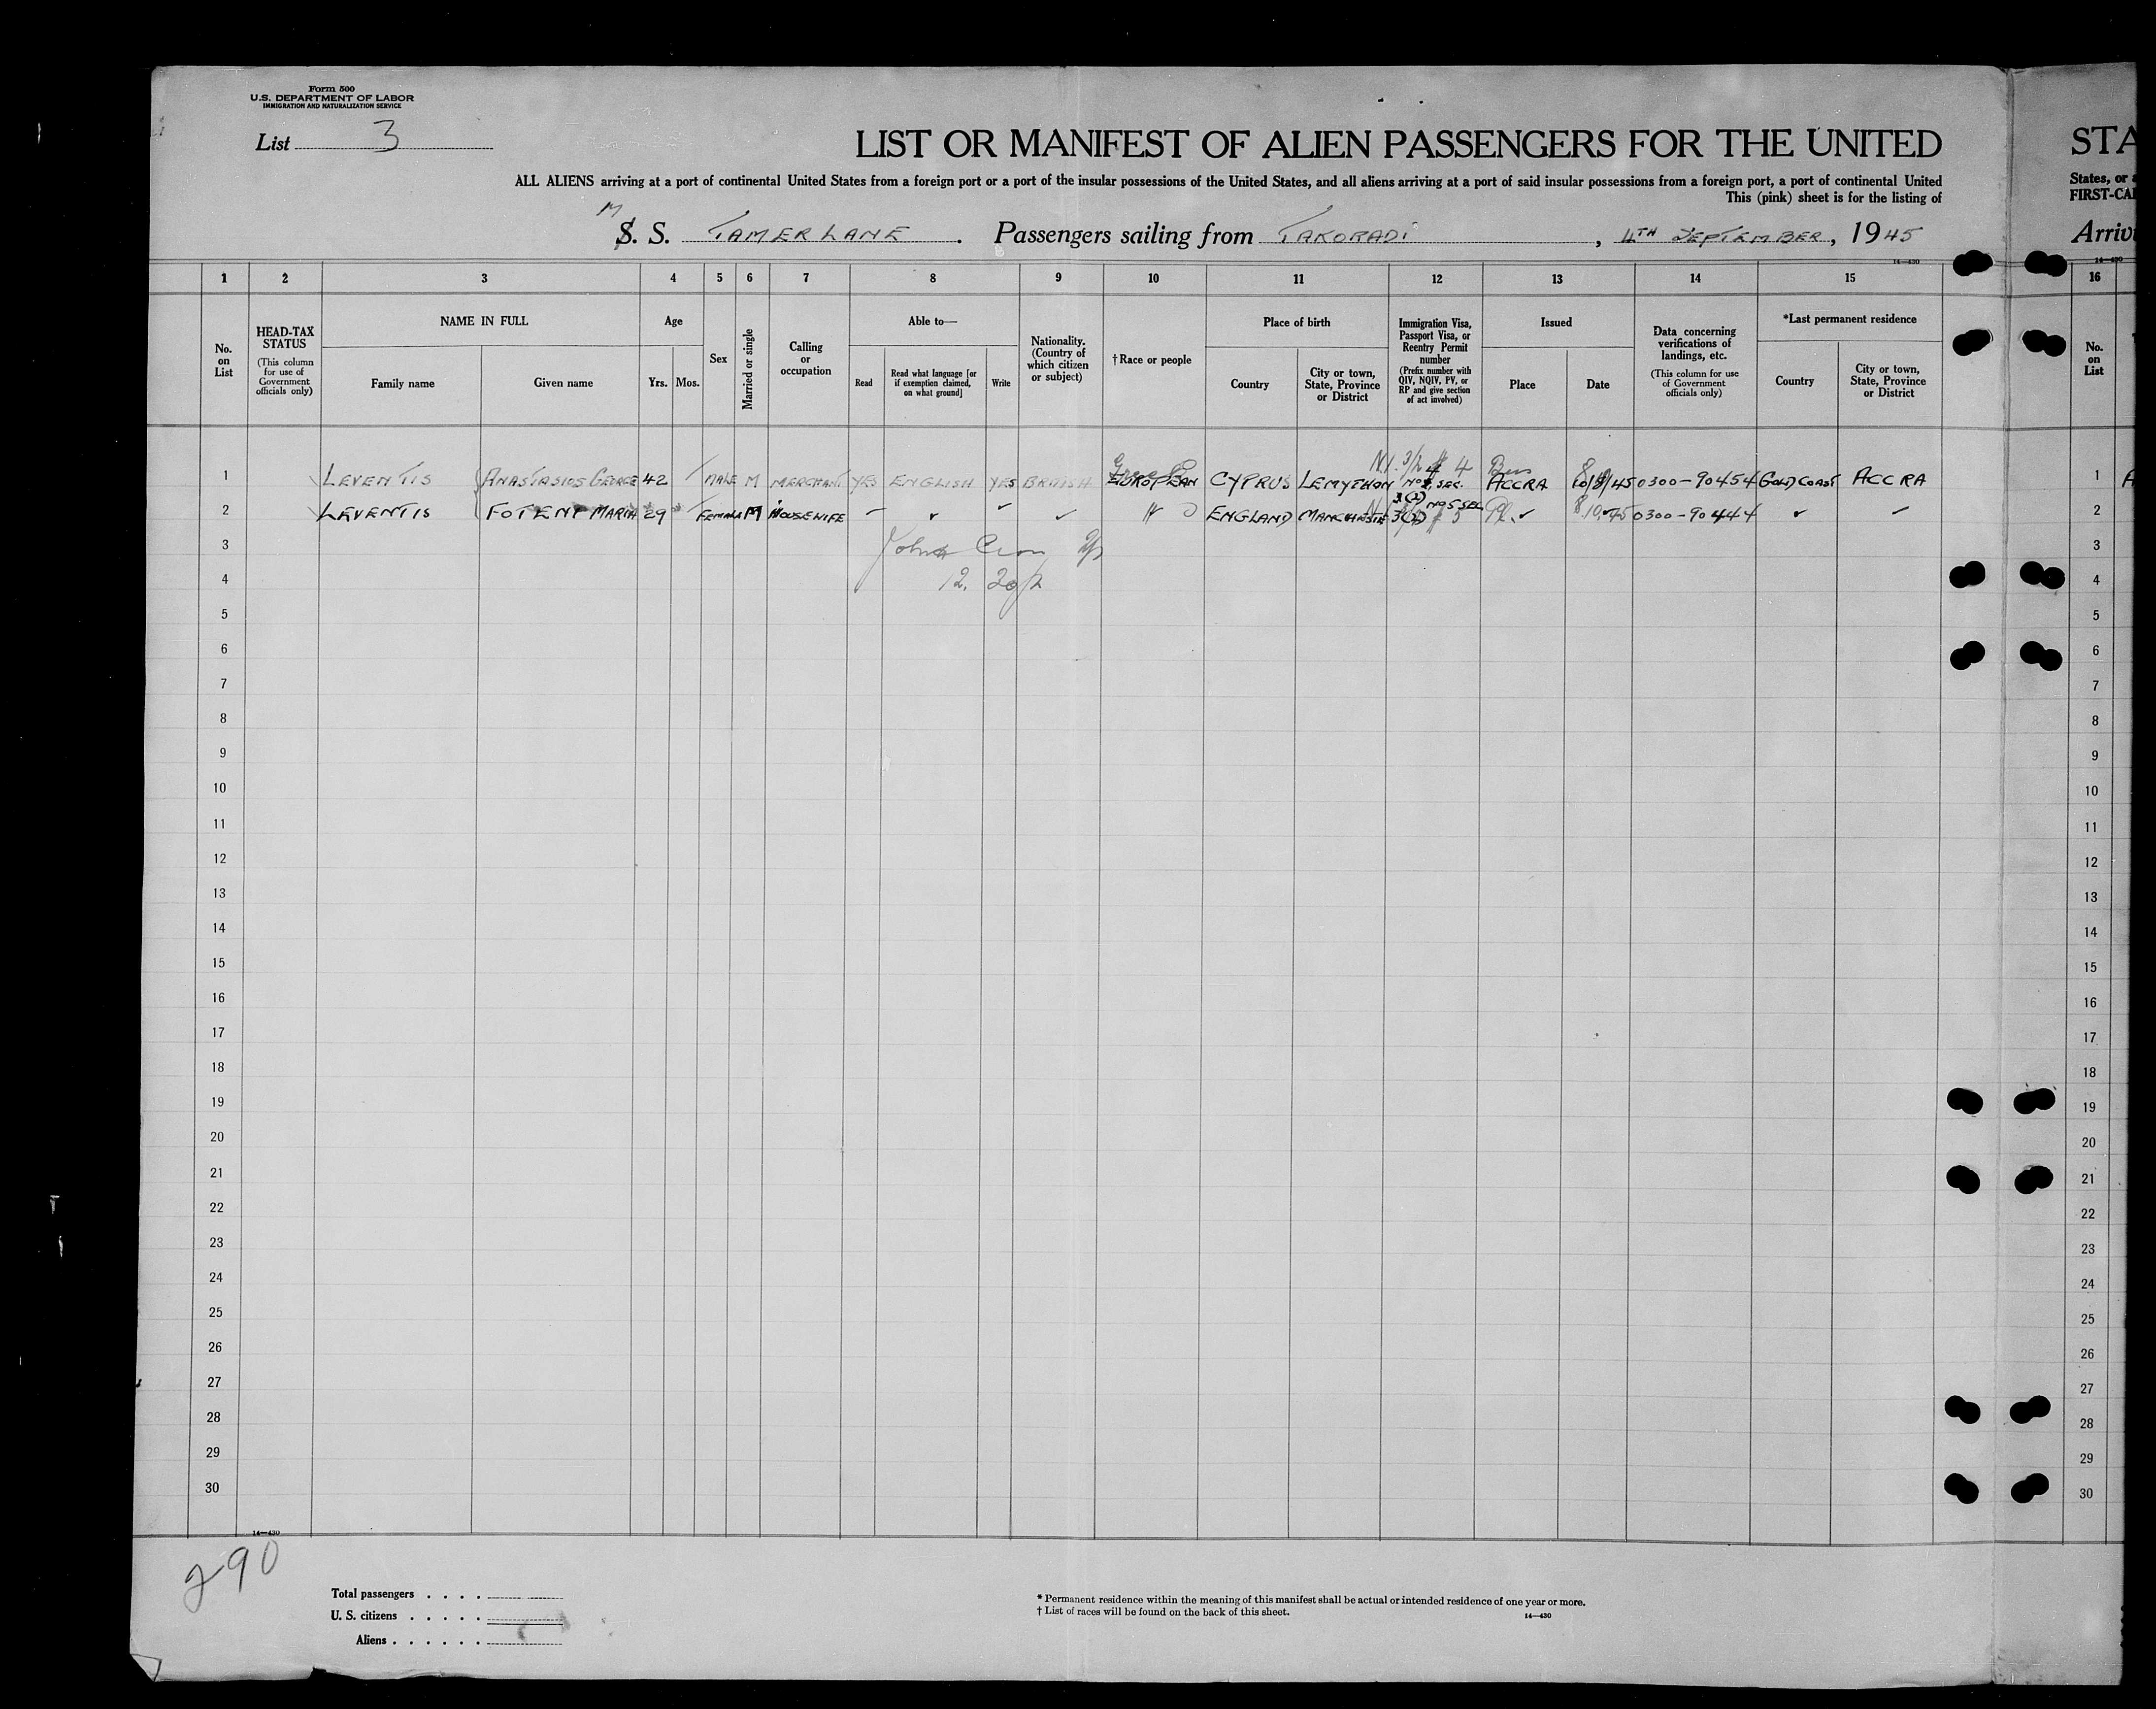 Form 500
U.S. DEPARTMENT OF LABOR
IMMIGRATION AND NATURALIZATION SERVICE
List 3
LIST OR MANIFEST OF ALIEN PASSENGERS FOR THE UNITED
STA
ALL ALIENS arriving at a port of continental United States from a foreign port or a port of the insular possessions of the United States, and all aliens arriving at a port of said insular possessions from a foreign port, a port of continental United
States, or a
This (pink) sheet is for the listing of
FIRST-CA
M
S. S. TAMERLANE . Passengers sailing from TAKORADI , 4TH SEPTEMBER, 1945
Arriv
14—430 14—430
1 2 3 4 5 6 7 8 9 10 11 12 13 14 15 16
No. on List
HEAD-TAX STATUS
(This column for use of Government officials only)
NAME IN FULL
Family name Given name
Age
Yrs. Mos.
Sex
Married or single
Calling or occupation
Able to—
Read
Read what language [or if exemption claimed, on what ground]
Write
Nationality. (Country of which citizen or subject)
†Race or people
Place of birth
Country
City or town, State, Province or District
Immigration Visa, Passport Visa, or Reentry Permit number
(Prefix number with QIV, NQIV, PV, or RP and give section of act involved)
Issued
Place Date
Data concerning verifications of landings, etc.
(This column for use of Government officials only)
*Last permanent residence
Country
City or town, State, Province or District
No. on List
1 LEVENTIS ANASTASIOS GEORGE 42 MALE M MERCHANT YES ENGLISH YES BRITISH EUROPEAN CYPRUS LEMYTHON ACCRA 0300-90454 GOLD COAST ACCRA 1
2 LEVENTIS FOTENI MARIA 29 FEMALE M HOUSEWIFE ENGLAND 3(2) 0300-90444 2
3 3
4 4
5 5
6 6
7 7
8 8
9 9
10 10
11 11
12 12
13 13
14 14
15 15
16 16
17 17
18 18
19 19
20 20
21 21
22 22
23 23
24 24
25 25
26 26
27 27
28 28
29 29
30 30
14—430
290
Total passengers . . . .
U. S. citizens . . . . .
Aliens . . . . . .
* Permanent residence within the meaning of this manifest shall be actual or intended residence of one year or more.
† List of races will be found on the back of this sheet.
14—430